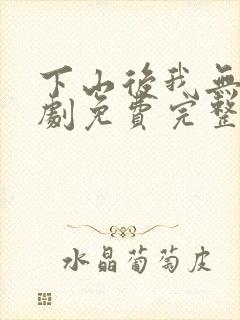 下山后我無
劇免費完整
水晶葡萄皮